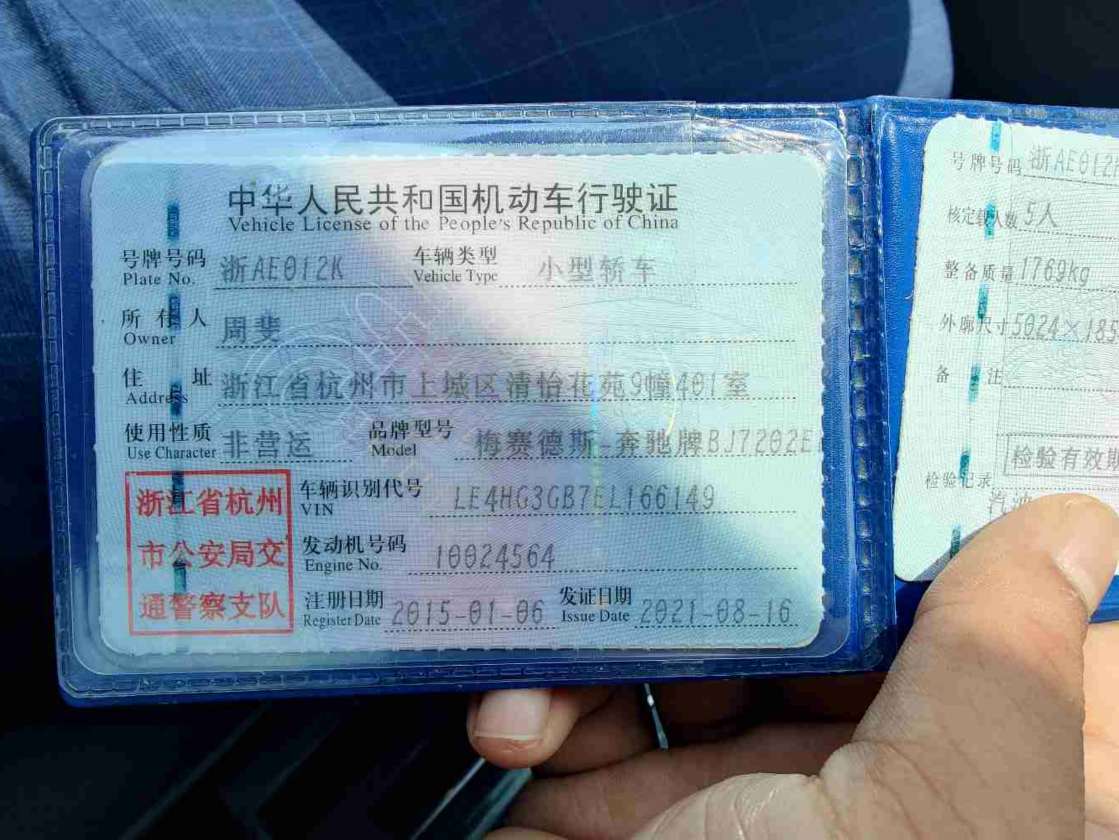 中华人民共和国机动车行驶证
Vehicle License of the People's Republic of China
号牌号码 浙AE012K 车辆类型 小型轿车
Plate No. Vehicle Type
所有人 周斐
Owner
住址 浙江省杭州市上城区清怡花苑9幢401室
Address
使用性质 非营运 品牌型号 梅赛德斯-奔驰牌BJ7202E
Use Character Model
浙江省杭州
市公安局交
通警察支队
车辆识别代号 LE4HG3GB7EL166149
VIN
发动机号码 10024564
Engine No.
注册日期 2015-01-06 发证日期 2021-08-16
Register Date Issue Date
号牌号码 浙AE012
核定载人数 5人
整备质量 1769kg
外廓尺寸 5024×185
备注
检验有效期
检验记录